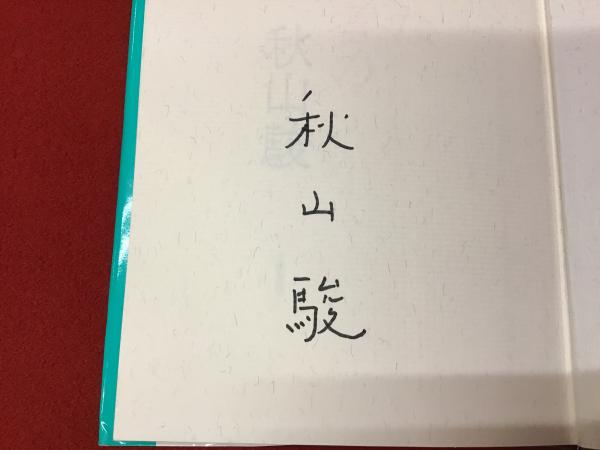 秋山駿